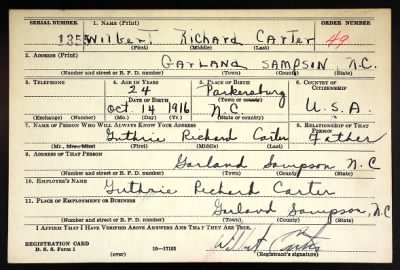 SERIAL NUMBER 1. NAME (Print) ORDER NUMBER
1355 Wilbert Richard Carter 49
(First) (Middle) (Last)
2. ADDRESS (Print)
Garland Sampson N.C.
(Number and street or R. F. D. number) (Town) (County) (State)
3. TELEPHONE 4. AGE IN YEARS 5. PLACE OF BIRTH 6. COUNTRY OF CITIZENSHIP
24 Parkersburg
DATE OF BIRTH (Town or county)
Oct. 14 1916 N.C. U.S.A.
(Exchange) (Number) (Mo.) (Day) (Yr.) (State or country)
7. NAME OF PERSON WHO WILL ALWAYS KNOW YOUR ADDRESS 8. RELATIONSHIP OF THAT PERSON
Guthrie Richard Carter Father
(Mr., Mrs., Miss) (First) (Middle) (Last)
9. ADDRESS OF THAT PERSON
Garland Sampson N.C
(Number and street or R. F. D. number) (Town) (County) (State)
10. EMPLOYER'S NAME
Guthrie Richard Carter
11. PLACE OF EMPLOYMENT OR BUSINESS
Garland Sampson, N.C
(Number and street or R. F. D. number) (Town) (County) (State)
I AFFIRM THAT I HAVE VERIFIED ABOVE ANSWERS AND THAT THEY ARE TRUE.
REGISTRATION CARD
D. S. S. Form 1 16-17105 Wilbert Carter
(over) (Registrant's signature)